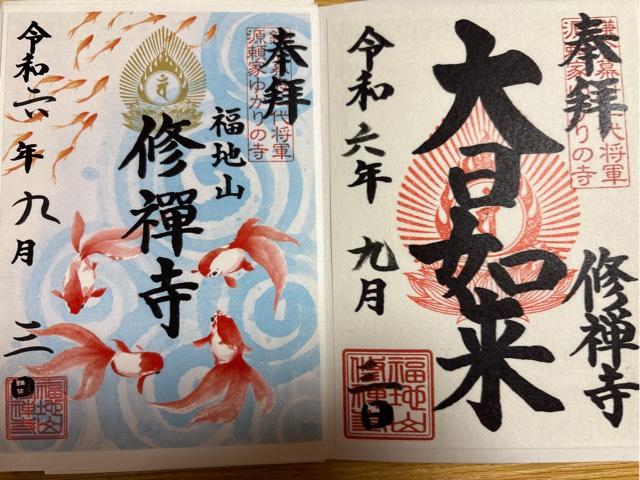 奉拝
鎌倉幕府二代将軍
源頼家ゆかりの寺
福地山
修禅寺
令和六年九月三日
福地山
修禅寺
奉拝
鎌倉幕府二代将軍
源頼家ゆかりの寺
修禅寺
大日如来
令和六年九月三日
福地山
修禅寺